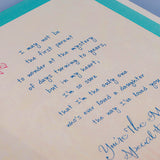 I may not be
the first parent
to wonder at the mystery
of days turning to years,
but in my heart,
I'm so sure
that I'm the only one
who's ever loved a daughter
the way I've loved you
You're the
Special